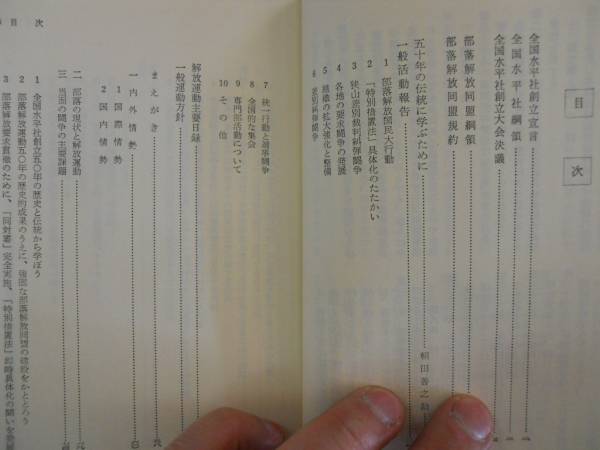 目次
全国水平社創立宣言
全国水平社綱領
全国水平社創立大会決議
部落解放同盟綱領
部落解放同盟規約
五十年の伝統に学ぶために
一般活動報告
1 部落解放国民大行動
2 「特別措置法」具体化のたたかい
3 狭山差別裁判糾弾闘争
4 各地の要求闘争の発展
5 組織の拡大強化と整備
6 差別糾弾闘争
7 統一行動と選挙闘争
8 全国的な集会
9 専門部活動について
10 その他
解放運動主要日録
一般運動方針
まえがき
一 内外情勢
1 国際情勢
2 国内情勢
二 部落の現状と解放運動
三 当面の闘争の主要課題
1 全国水平社創立五〇年の歴史と伝統から学ぼう
2 部落解放運動五〇年の歴史的成果のうえに、強固な部落解放同盟の建設をかとろう
3 部落解放要求貫徹のために、「同対審」完全実施、「特別措置法」即時具体化の闘いを発展
目次